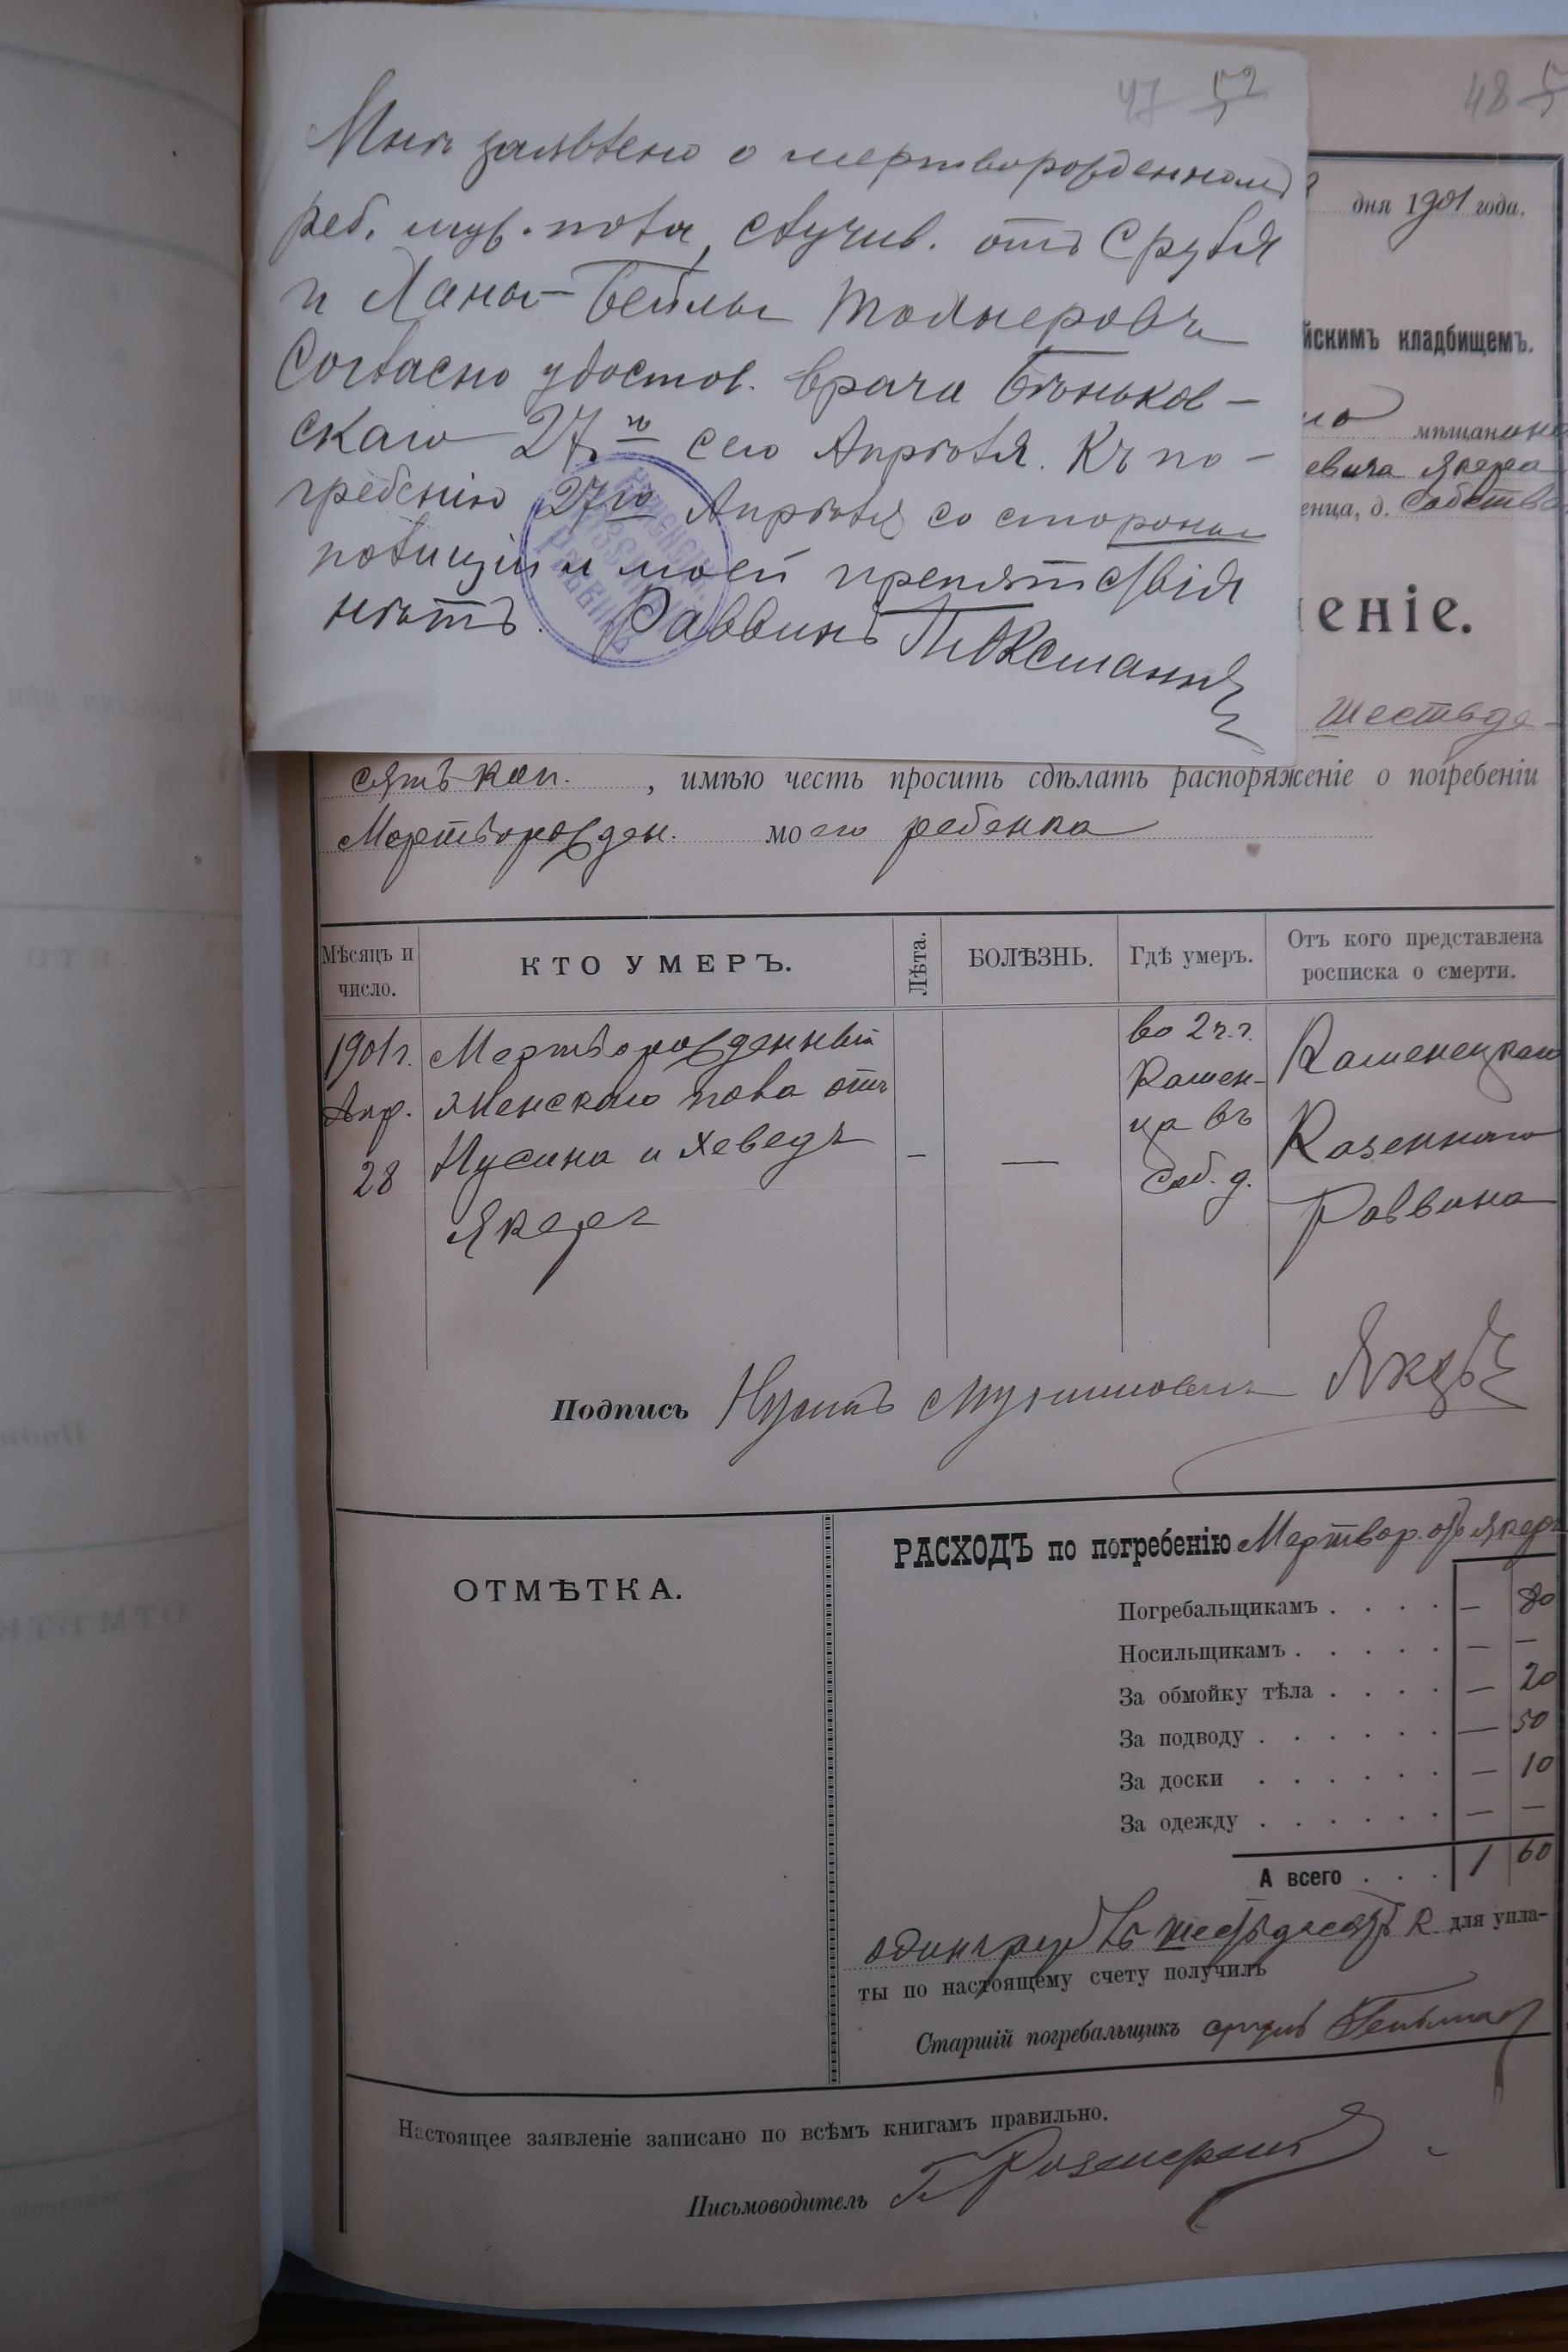 47 52
Мнѣ заявлено о мертворожденномъ
реб. муж. пола, случив. отъ Сруля
и Ханы-Бейлы Толмеровъ
Согласно удостов. врача Бѣньков-
скаго 27го сего Апрѣля. Къ по-
гребенію 27го Апрѣля со стороны
полиціи и моей препятствія
нѣтъ. Раввинъ
РАВВИНЪ
48
дня 1901 года.
йскимъ кладбищемъ.
мѣщанина
евича Якера
енца, д. Собств
еніе.
шестьде-
сятъ коп. , имѣю честь просить сдѣлать распоряженіе о погребеніи
Мертворожден. моего ребенка
Мѣсяцъ и число.
КТО УМЕРЪ.
Лѣта.
БОЛѢЗНЬ.
Гдѣ умеръ.
Отъ кого представлена
росписка о смерти.
1901г.
Апр.
28
Мертворожденный
женскаго пола отъ
Нусина и Хеведъ
Якеръ
–
—
во 2 ч. г.
Камен-
ца въ
соб. д.
Каменецкаго
Казеннаго
Раввина
Подпись Нусинъ Якеръ
ОТМѢТКА.
РАСХОДЪ по погребенію Мертвор. отъ Якеръ
Погребальщикамъ . . . . — 80
Носильщикамъ . . . . . — —
За обмойку тѣла . . . . — 20
За подводу . . . . . . — 50
За доски . . . . . . — 10
За одежду . . . . . . — —
А всего . . . 1 60
одинъ рубль шестьдесятъ к для упла-
ты по настоящему счету получилъ
Старшій погребальщикъ
Настоящее заявленіе записано по всѣмъ книгамъ правильно.
Письмоводитель